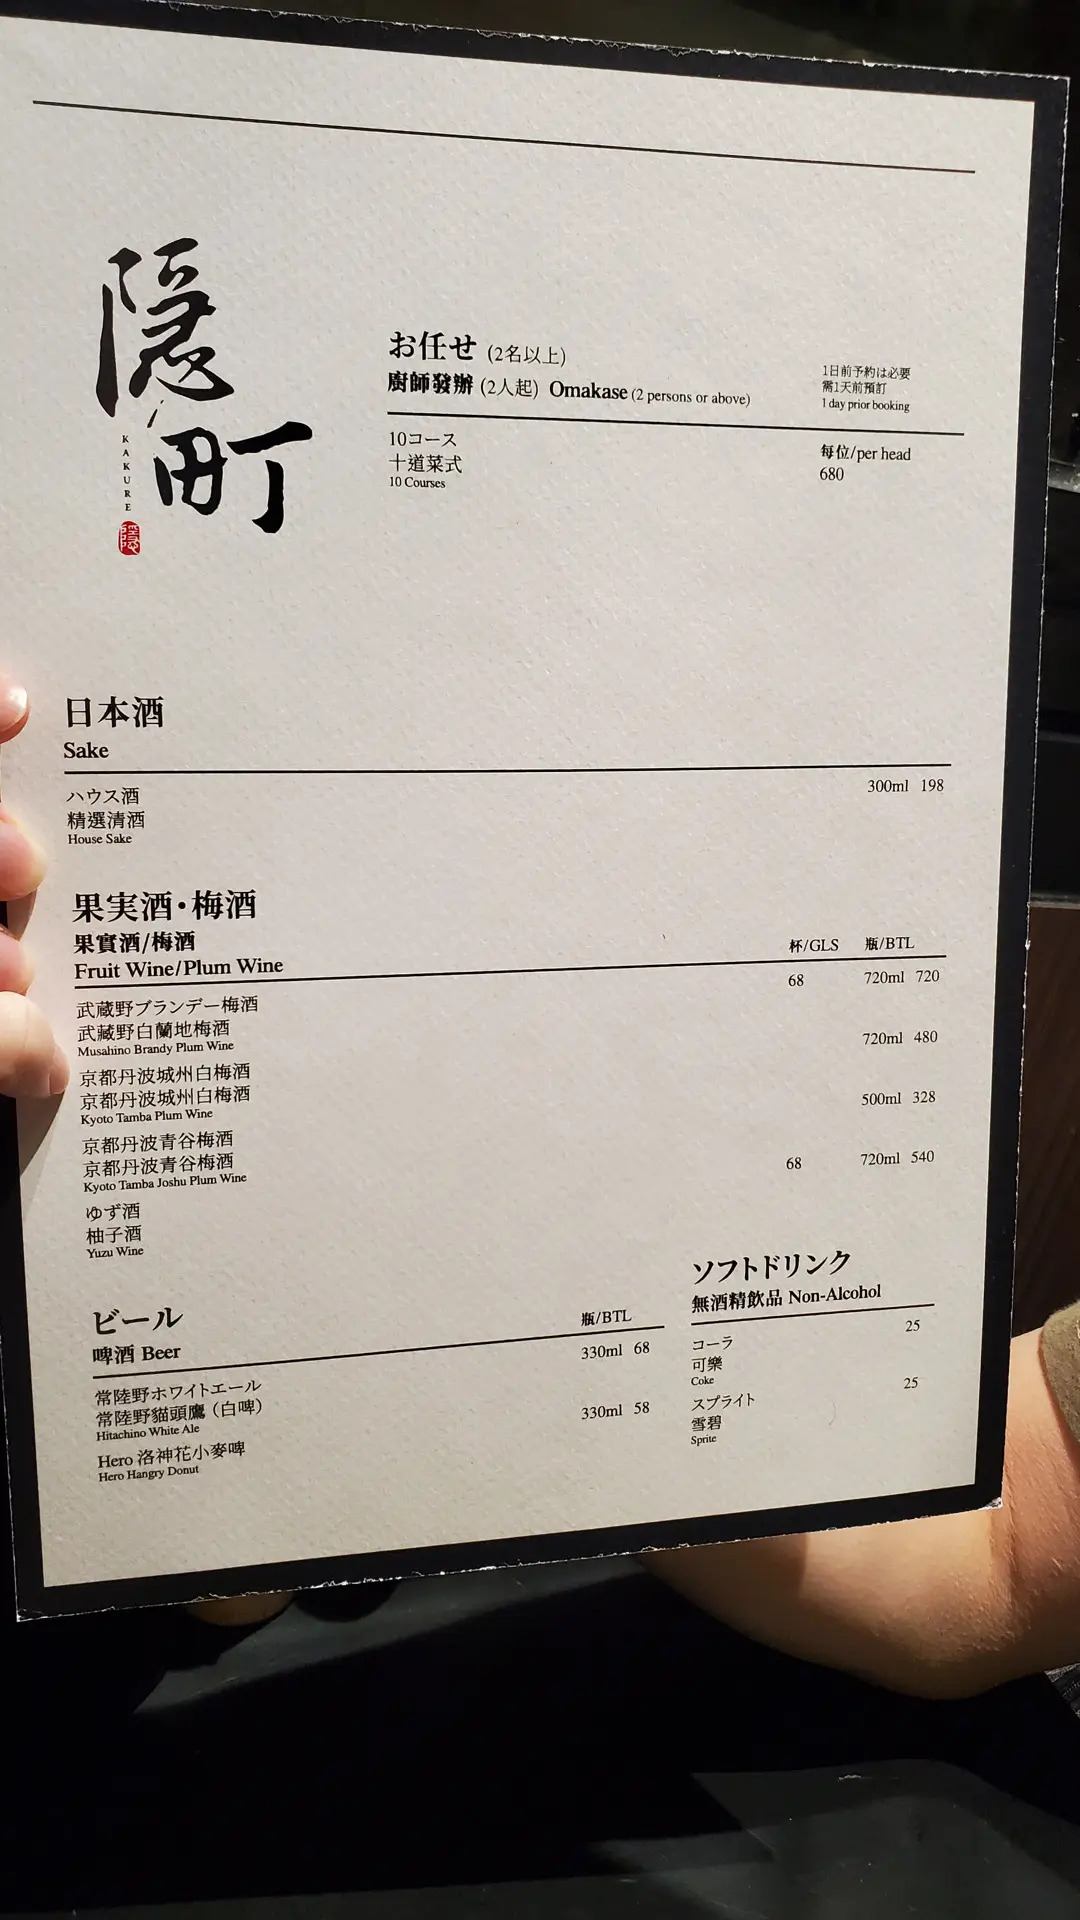 隠町
KAKURE
隠
お任せ (2名以上)
廚師發辦 (2人起) Omakase (2 persons or above)
1日前予約は必要
需1天前預訂
1 day prior booking
10コース
十道菜式
10 Courses
每位/per head
680
日本酒
Sake
ハウス酒
精選清酒
House Sake
300ml 198
果実酒・梅酒
果實酒/梅酒
Fruit Wine/Plum Wine
杯/GLS 瓶/BTL
武蔵野ブランデー梅酒
武藏野白蘭地梅酒
Musahino Brandy Plum Wine
68 720ml 720
京都丹波城州白梅酒
京都丹波城州白梅酒
Kyoto Tamba Plum Wine
720ml 480
京都丹波青谷梅酒
京都丹波青谷梅酒
Kyoto Tamba Joshu Plum Wine
500ml 328
ゆず酒
柚子酒
Yuzu Wine
68 720ml 540
ビール
啤酒 Beer
瓶/BTL
常陸野ホワイトエール
常陸野貓頭鷹（白啤）
Hitachino White Ale
330ml 68
Hero 洛神花小麥啤
Hero Hangry Donut
330ml 58
ソフトドリンク
無酒精飲品 Non-Alcohol
コーラ
可樂
Coke
25
スプライト
雪碧
Sprite
25